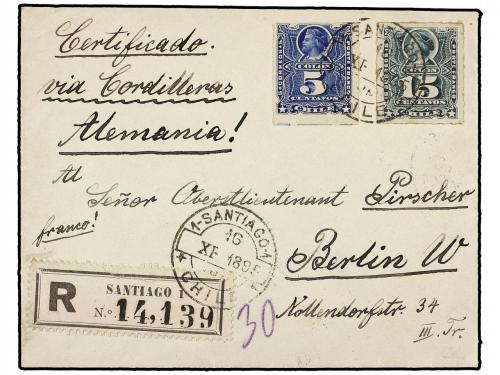 Certificado.
via Cordilleras
Alemania!
COLON
5
CENTAVOS
COLON
15
CENTAVOS
CHILE
Al
Señor Oberstlieutenant Pirscher
franco!
Berlin W
Nollendorfstr. 34
III. Tr.
1-SANTIAGO-1
16
XI 1895
CHILE
R
SANTIAGO 1
N.º 14,139
30